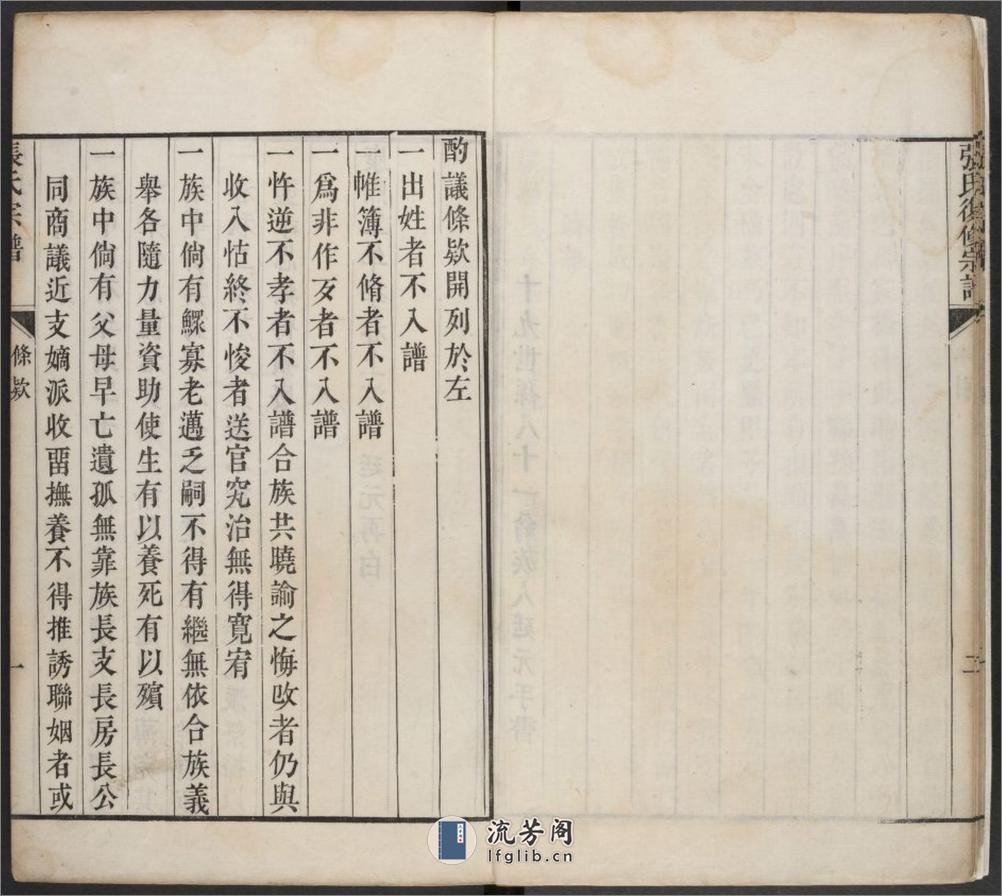 張氏復修宗譜
二
酌議條款開列於左
一出姓者不入譜
一帷簿不脩者不入譜
一爲非作歹者不入譜
一忤逆不孝者不入譜合族共曉諭之悔改者仍與
收入怙終不悛者送官究治無得寬宥
一族中倘有鰥寡老邁乏嗣不得有繼無依合族義
舉各隨力量資助使生有以養死有以殯
一族中倘有父母早亡遺孤無靠族長支長房長公
同商議近支嫡派收畱撫養不得推誘聯姻者或
張氏宗譜
條款
一
流芳阁
lfglib.cn